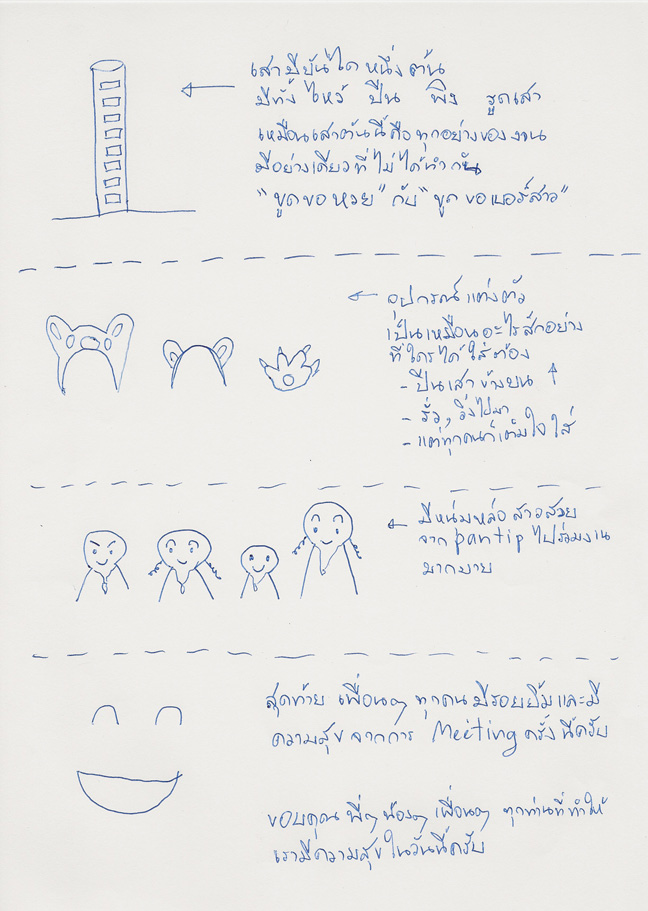 เสามีบันได หนึ่งต้น
มีทั้ง ไหว้ ปีน พิง รูดเสา
เหมือนเสาต้นนี้คือทุกอย่างของงาน
มีอย่างเดียวที่ไม่ได้ทำกัน
"ขูดขอหวย" กับ "ขูดขอเบอร์สาว"
อุปกรณ์แต่งตัว
เป็นเหมือนอะไรสักอย่าง
ที่ใครได้ใส่ต้อง
- ปีนเสาข้างบน ↑
- รั่ว, วิ่งไปมา
- แต่ทุกคนก็เต็มใจใส่
มีหนุ่มหล่อ สาวสวย
จาก pantip ไปร่วมงาน
มากมาย
สุดท้าย เพื่อนๆ ทุกคนมีรอยยิ้มและมี
ความสุข จากการ Meeting ครั้งนี้ครับ
ขอบคุณ พี่ๆ น้องๆ เพื่อนๆ ทุกท่านที่ทำให้
เรามีความสุขในวันนี้ครับ